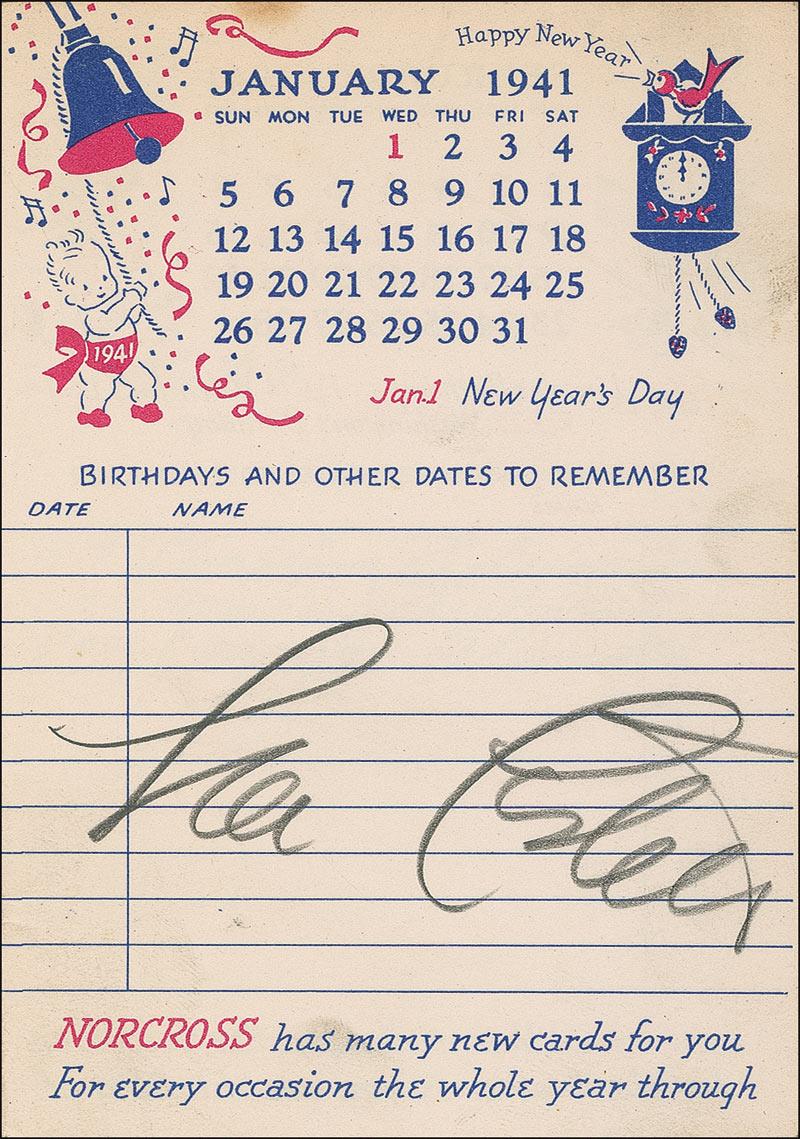 Happy New Year
JANUARY 1941
SUN MON TUE WED THU FRI SAT
1 2 3 4
5 6 7 8 9 10 11
12 13 14 15 16 17 18
19 20 21 22 23 24 25
26 27 28 29 30 31
1941
Jan.1 New Year's Day
BIRTHDAYS AND OTHER DATES TO REMEMBER
DATE NAME
NORCROSS has many new cards for you
For every occasion the whole year through